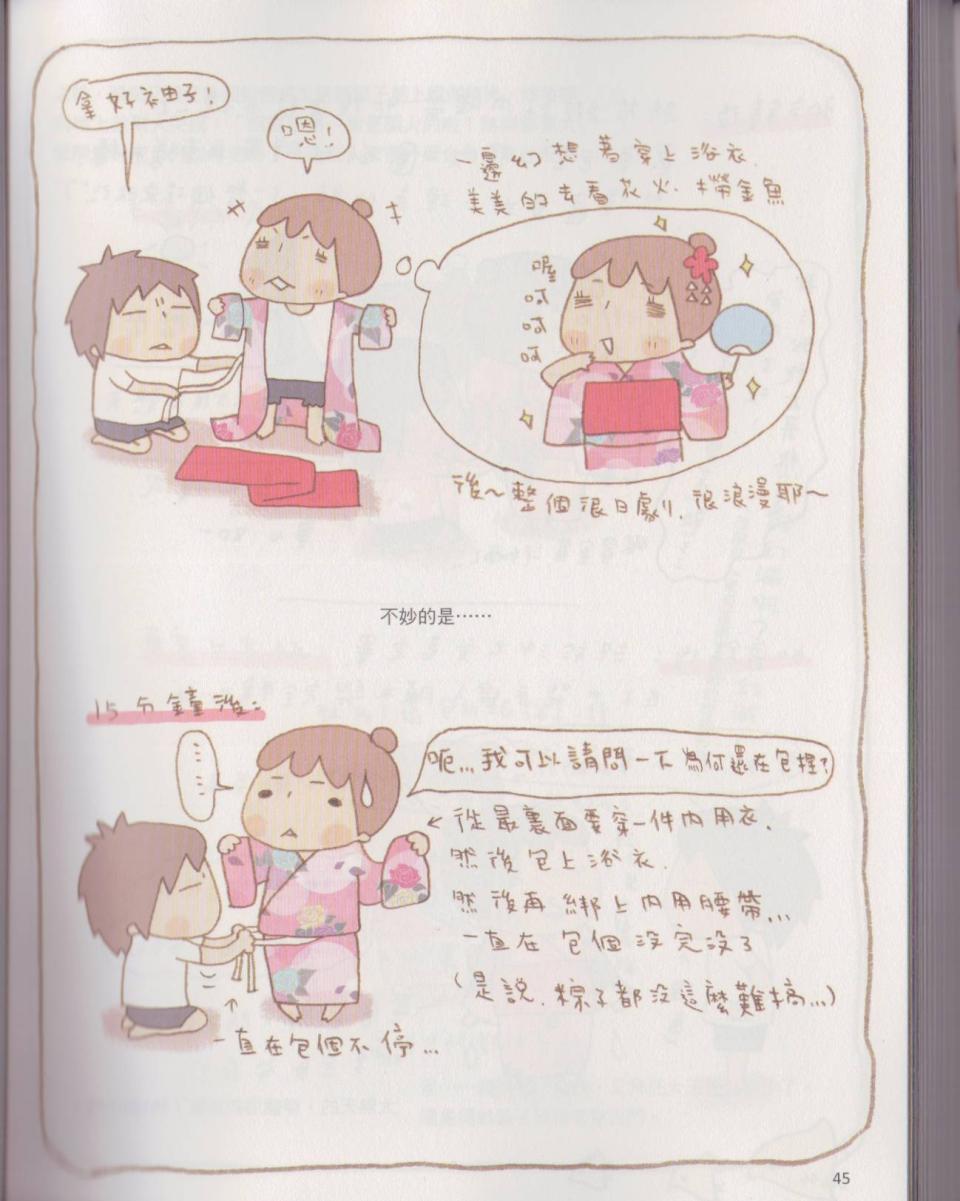 拿好衣袖子!
嗯!
一邊幻想著穿上浴衣.
美美的去看花火.撈金魚
喔
呵
呵
呵
後~整個很日劇.很浪漫耶~
不妙的是⋯⋯
15分鐘後:
......
呃...我可以請問一下為何還在包捏?
←從最裏面要穿一件內用衣.
然後包上浴衣.
然後再綁上內用腰帶...
一直在包個沒完沒了
(是說.粽子都沒這麼難搞...)
↑
一直在包個不停...
45